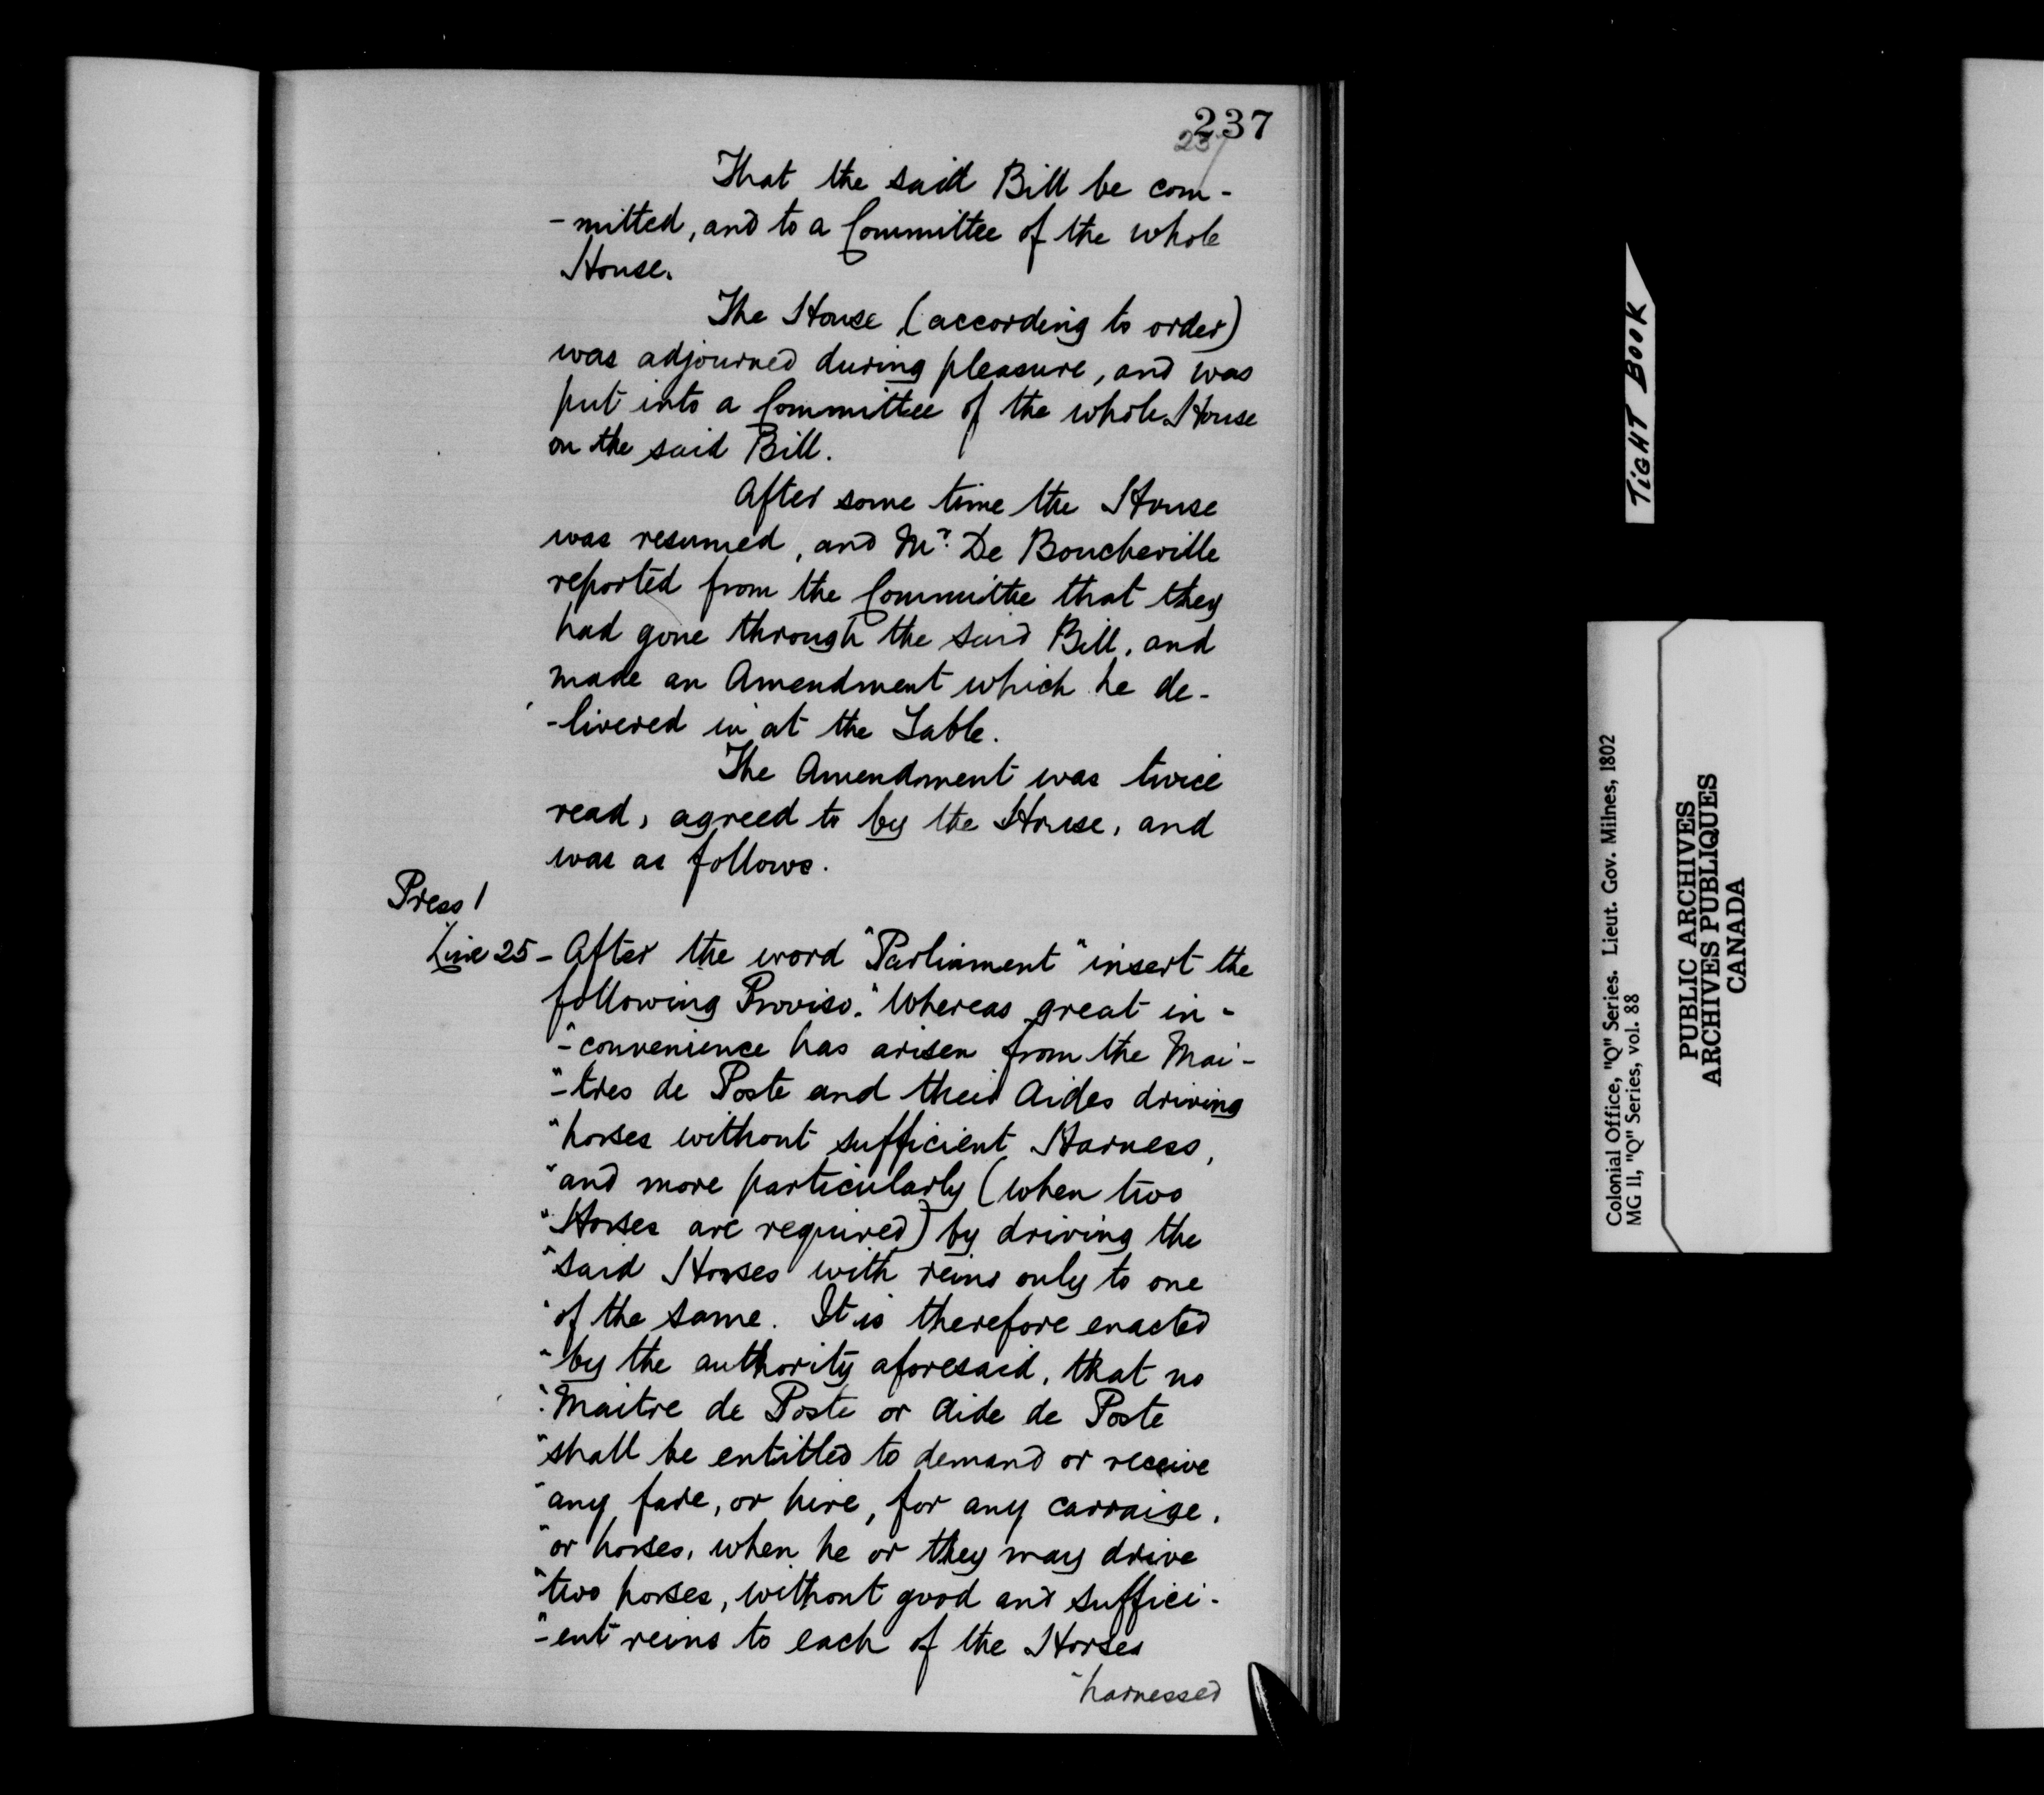 237
237
That the said Bill be com-
-mitted, and to a Committee of the whole
House.
The House (according to order)
was adjourned during pleasure, and was
put into a Committee of the whole House
on the said Bill.
After some time the House
was resumed, and Mr. De Boucherville
reported from the Committee that they
had gone through the said Bill, and
made an Amendment which he de-
-livered in at the Table.
The Amendment was twice
read, agreed to by the House, and
was as follows.
Press 1
Line 25 - After the word "Parliament" insert the
following Proviso. "Whereas great in-
"-convenience has arisen from the Mai-
"-tres de Poste and their Aides driving
"horses without sufficient Harness,
"and more particularly (when two
"Horses are required) by driving the
"said Horses with reins only to one
"of the same. It is therefore enacted
"by the authority aforesaid, that no
"Maitre de Poste or Aide de Poste
"shall be entitled to demand or receive
"any fare, or hire, for any carraige,
"or horses, when he or they may drive
"two horses, without good and suffici-
"-ent reins to each of the Horses
"harnessed
TIGHT BOOK
Colonial Office, "Q" Series. Lieut. Gov. Milnes, 1802
MG 11, "Q" Series, vol. 88
PUBLIC ARCHIVES
ARCHIVES PUBLIQUES
CANADA